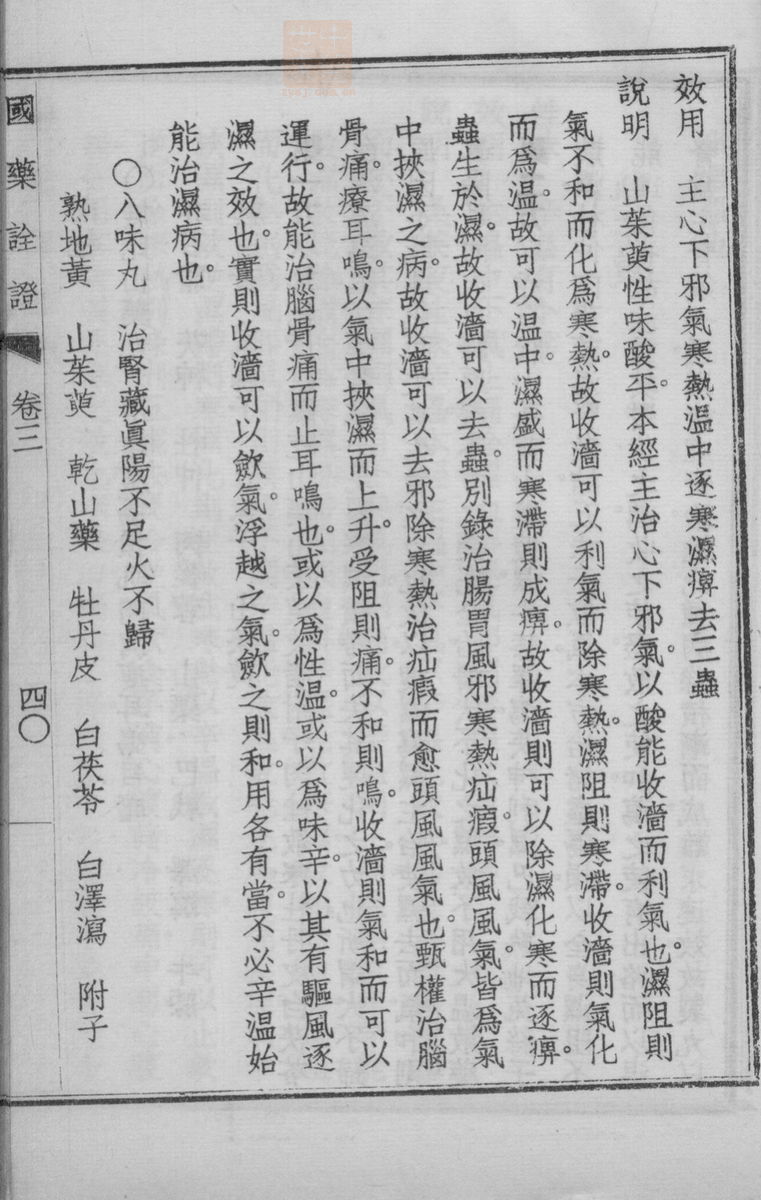 效用　主心下邪氣寒熱溫中逐寒濕痹去三蟲
說明　山茱萸性味酸平。本經主治心下邪氣。以酸能收濇而利氣也。濕阻則
氣不和而化爲寒熱。故收濇可以利氣而除寒熱。濕阻則寒滯。收濇則氣化
而爲溫。故可以溫中。濕盛而寒滯則成痹。故收濇則可以除濕化寒而逐痹。
蟲生於濕。故收濇可以去蟲。別錄治腸胃風邪寒熱疝瘕頭風風氣。皆爲氣
中挾濕之病。故收濇可以去邪除寒熱治疝瘕而愈頭風風氣也。甄權治腦
骨痛。療耳鳴。以氣中挾濕而上升。受阻則痛。不和則鳴。收濇則氣和而可以
運行。故能治腦骨痛而止耳鳴也。或以爲性溫。或以爲味辛。以其有驅風逐
濕之效也。實則收濇可以歛氣。浮越之氣。歛之則和。用各有當。不必辛溫始
能治濕病也。
〇八味丸　治腎藏眞陽不足火不歸
熟地黃　山茱萸　乾山藥　牡丹皮　白茯苓　白澤瀉　附子
國藥詮證　卷三　四〇